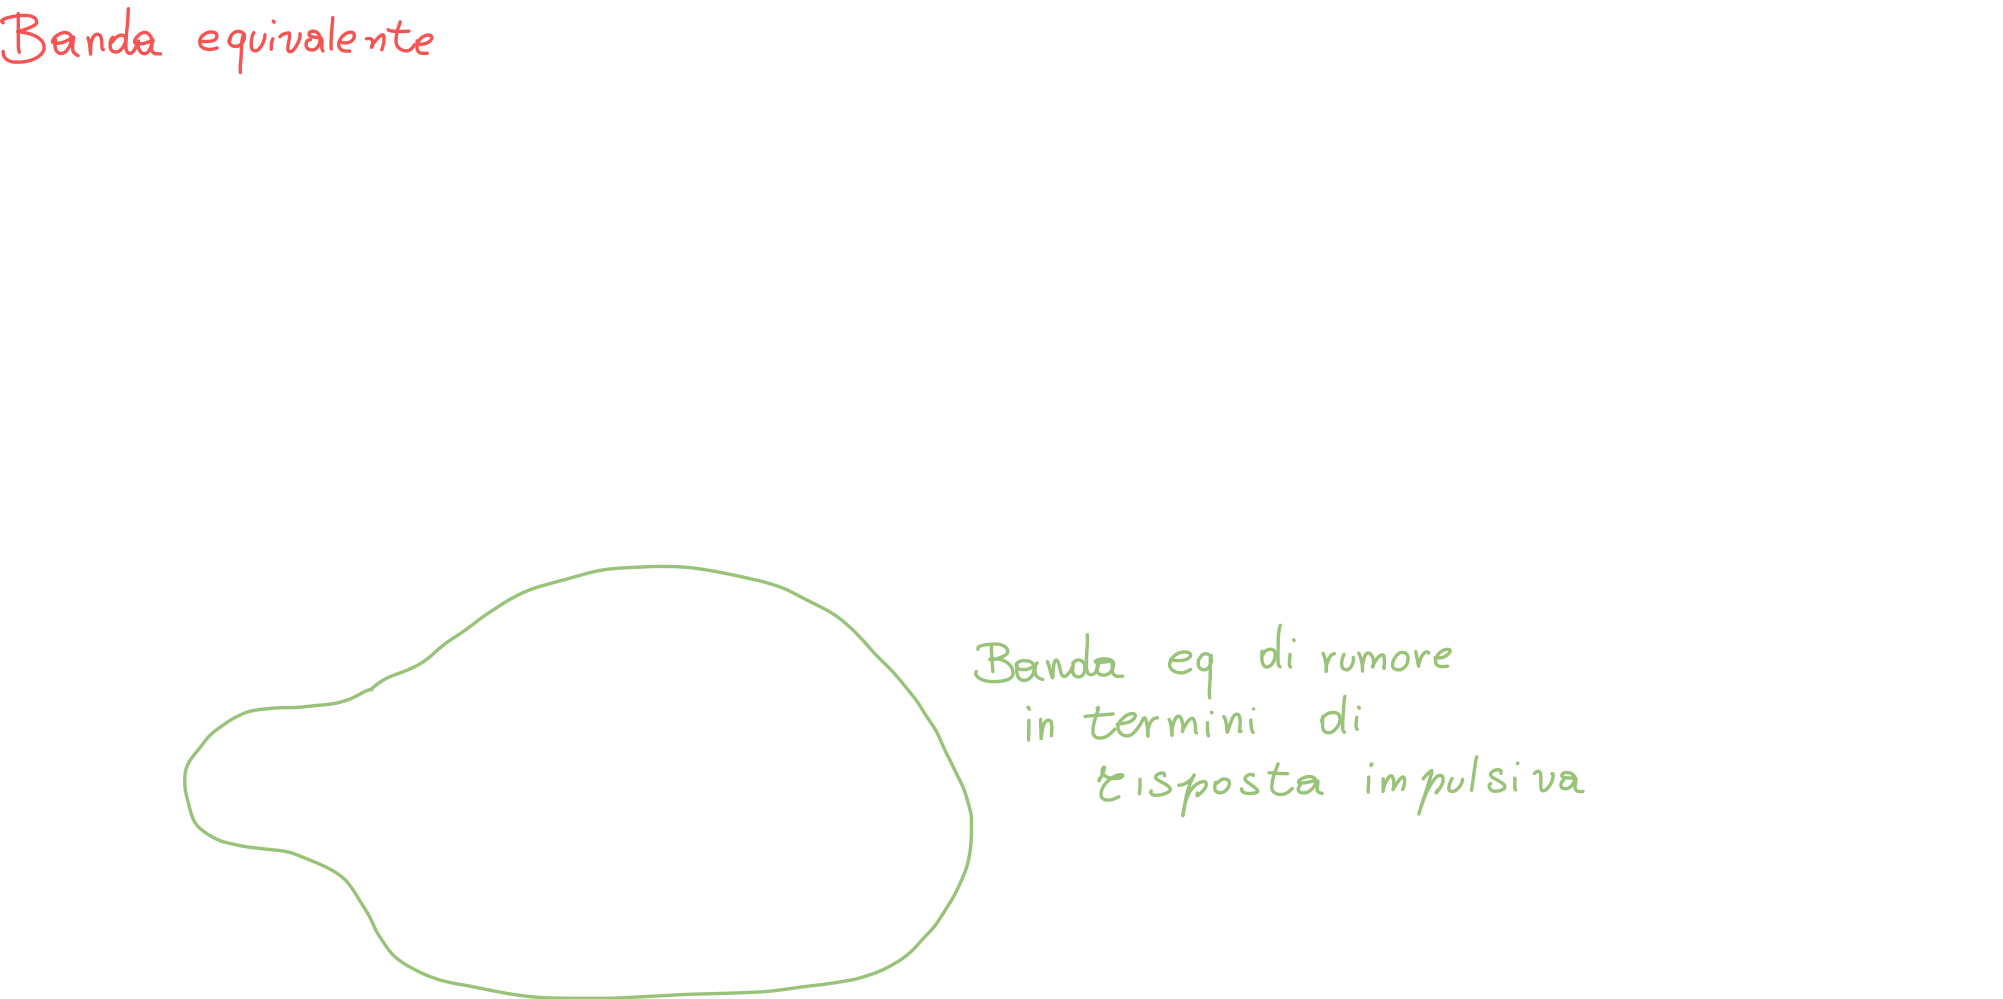 Banda equivalente
Banda eq di rumore
in termini di
risposta impulsiva